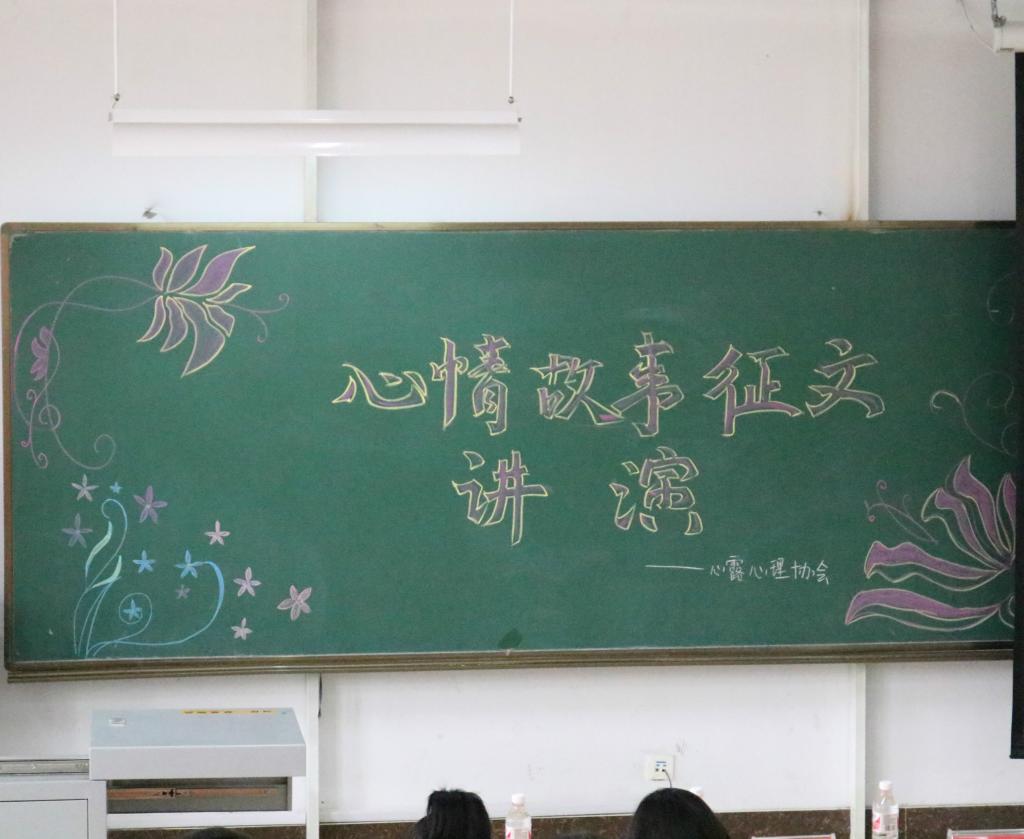 心情故事征文
讲 演
——心露心理协会